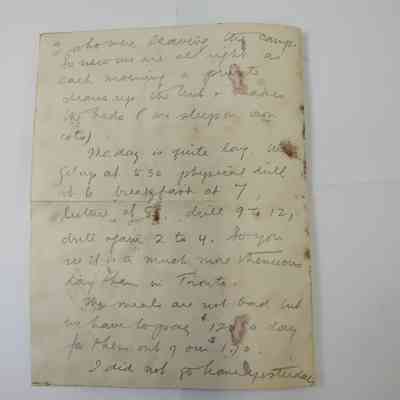 & who were leaving the camp.
So now we are all right as
each morning a private
cleans up the tent & makes
the beds (we sleep on iron
cots)
The day is quite long. We
get up at 5 30 physical drill
at 6 breakfast at 7,
lecture at 8, drill 9 to 12,
drill again 2 to 4. So you
see it is much more strenuous
day then in Tronto.
The meals are not bad but
we have to pay $1.20 a day
for them out of our $1.70.
I did not go have yesterday